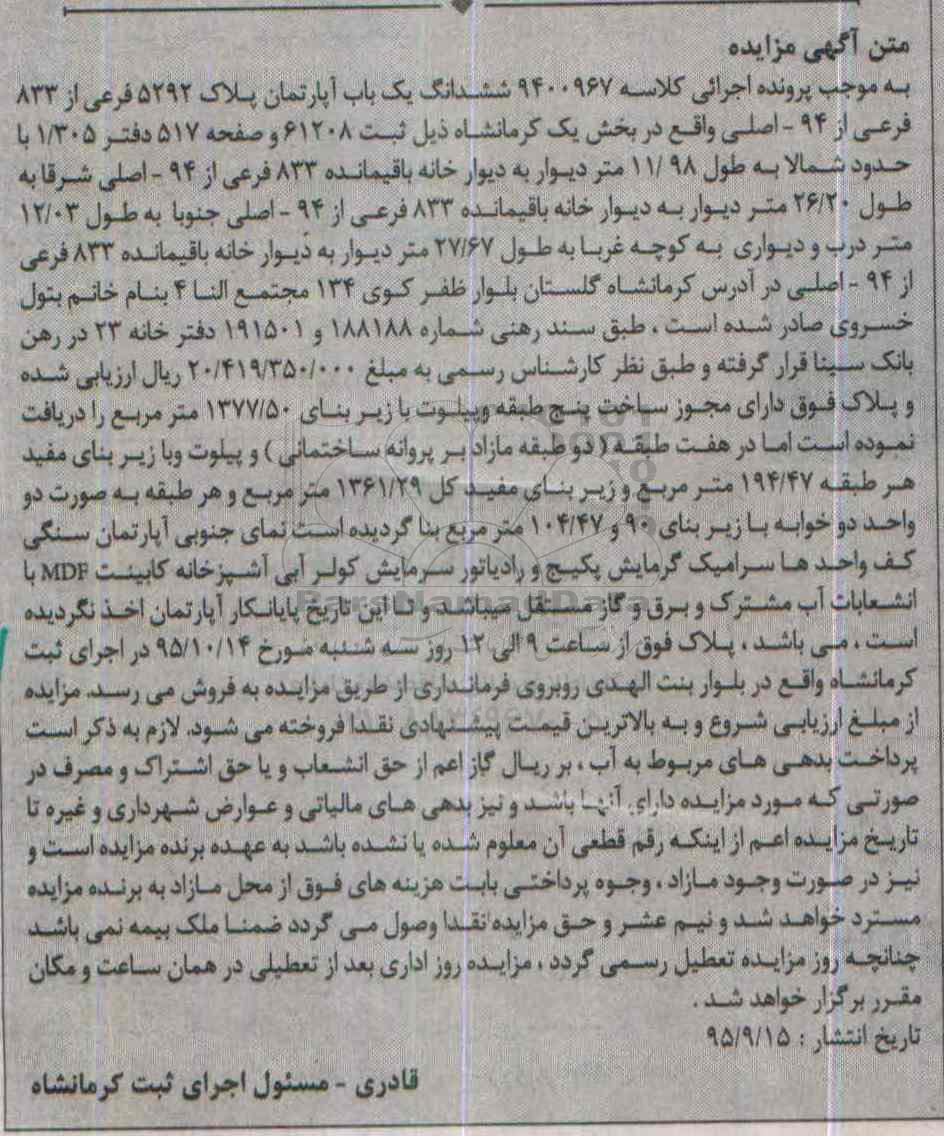 متن آگهی مزایده
به موجب پرونده اجرائی کلاسه ۹۴۰۰۹۶۷ ششدانگ یک باب آپارتمان پلاک ۵۲۹۲ فرعی از ۸۳۳
فرعی از ۹۴ - اصلی واقع در بخش یک کرمانشاه ذیل ثبت ۶۱۲۰۸ و صفحه ۵۱۷ دفتر ۱/۳۰۵ با
حدود شمالا به طول ۹۸ /۱۱ متر دیوار به دیوار خانه باقیمانده ۸۳۳ فرعی از ۹۴ - اصلی شرقا به
طول ۲۶/۲۰ متر دیوار به دیوار خانه باقیمانده ۸۳۳ فرعی از ۹۴ - اصلی جنوبا به طول ۱۲/۰۳
متر درب و دیواری به کوچه غربا به طول ۲۷/۶۷ متر دیوار به دیوار خانه باقیمانده ۸۳۳ فرعی
از ۹۴ - اصلی در آدرس کرمانشاه گلستان بلوار ظفر کوی ۱۳۴ مجتمع النا ۴ بنام خانم بتول
خسروی صادر شده است ، طبق سند رهنی شماره ۱۸۸۱۸۸ و ۱۹۱۵۰۱ دفتر خانه ۲۳ در رهن
بانک سینا قرار گرفته و طبق نظر کارشناس رسمی به مبلغ ۲۰/۴۱۹/۳۵۰/۰۰۰ ریال ارزیابی شده
و پلاک فوق دارای مجوز ساخت پنج طبقه وپیلوت با زیر بنای ۱۳۷۷/۵۰ متر مربع را دریافت
نموده است اما در هفت طبقه ( دو طبقه مازاد بر پروانه ساختمانی ) و پیلوت وبا زیر بنای مفید
هر طبقه ۱۹۴/۴۷ متر مربع و زیر بنای مفید کل ۱۳۶۱/۲۹ متر مربع و هر طبقه به صورت دو
واحد دو خوابه با زیر بنای ۹۰ و ۱۰۴/۴۷ متر مربع بنا گردیده است نمای جنوبی آپارتمان سنگی
کف واحد ها سرامیک گرمایش پکیج و رادیاتور سرمایش کولر آبی آشپزخانه کابینت MDF با
انشعابات آب مشترک و برق و گاز مستقل میباشد و تا این تاریخ پایانکار آپارتمان اخذ نگردیده
است ، می باشد ، پلاک فوق از ساعت ۹ الی ۱۲ روز سه شنبه مورخ ۹۵/۱۰/۱۴ در اجرای ثبت
کرمانشاه واقع در بلوار بنت الهدی روبروی فرمانداری از طریق مزایده به فروش می رسد. مزایده
از مبلغ ارزیابی شروع و به بالاترین قیمت پیشنهادی نقدا فروخته می شود. لازم به ذکر است
پرداخت بدهی های مربوط به آب ، بر ریال گاز اعم از حق انشعاب و یا حق اشتراک و مصرف در
صورتی که مورد مزایده دارای آنها باشد و نیز بدهی های مالیاتی و عوارض شهرداری و غیره تا
تاریخ مزایده اعم از اینکه رقم قطعی آن معلوم شده یا نشده باشد به عهده برنده مزایده است و
نیز در صورت وجود مازاد ، وجوه پرداختی بابت هزینه های فوق از محل مازاد به برنده مزایده
مسترد خواهد شد و نیم عشر و حق مزایده نقدا وصول می گردد ضمنا ملک بیمه نمی باشد
چنانچه روز مزایده تعطیل رسمی گردد ، مزایده روز اداری بعد از تعطیلی در همان ساعت و مکان
مقرر برگزار خواهد شد .
تاریخ انتشار : ۹۵/۹/۱۵
قادری - مسئول اجرای ثبت کرمانشاه